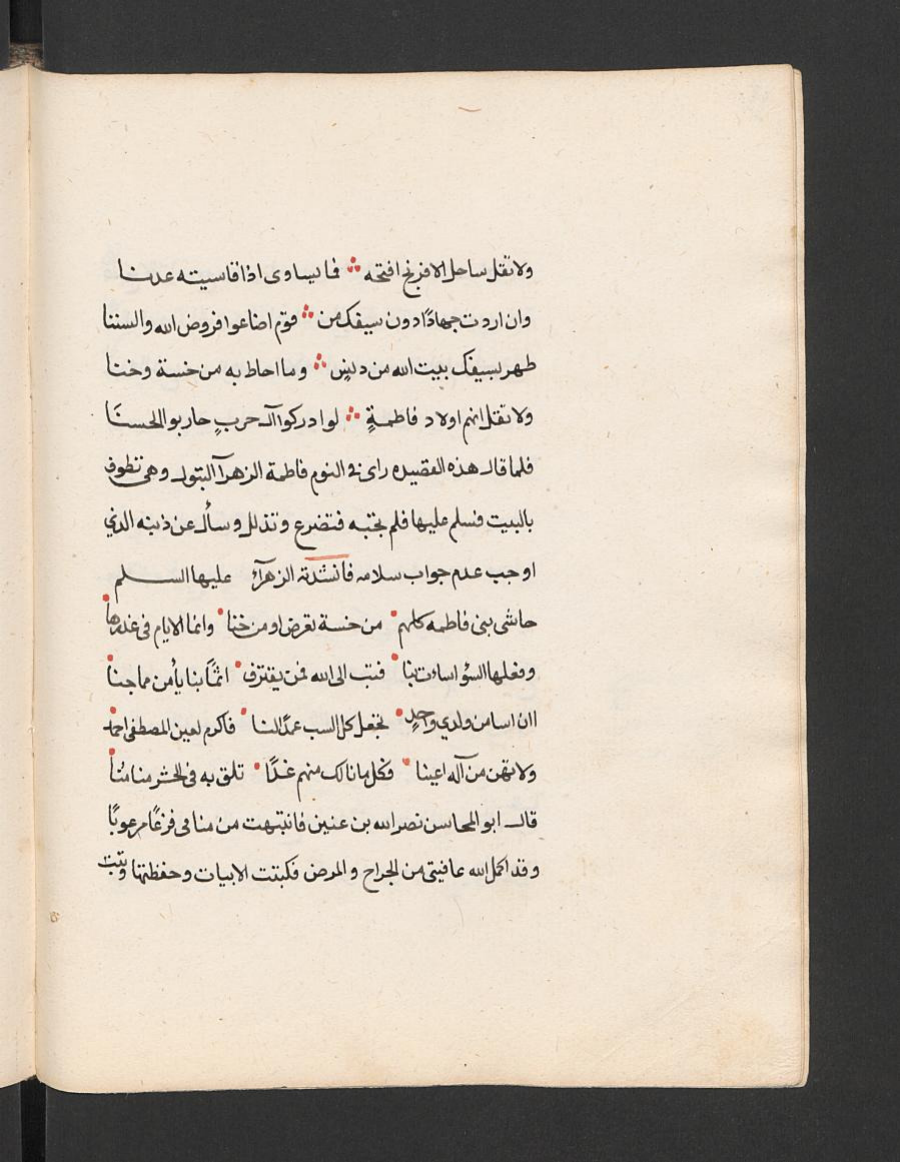 ولا تقل ساحل الافرنج افتحه ∴ فما يساوى اذا قاسيته عدنا
وان اردت جهادًا دون سيفك من ∴ قوم اضاعوا فروض الله والسننا
طهر بسيفك بيت الله من دنسٍ ∴ وما احاط به من خسة وخنا
ولا تقل انهم اولاد فاطمةٍ ∴ لو ادركوا آل حربٍ حاربوا الحسنَا
فلما قال هذه القصيده راى فى النوم فاطمة الزهرآ البتول وهى تطوف
بالبيت فسلم عليها فلم تجبه فتضرع وتذلل وسأل عن ذنبه الذي
اوجب عدم جواب سلامه فانشدته الزهرآء عليها السلم
حاشى بنى فاطمه كلهم • من خسة تعرض او من خنا • وانما الايام فى غدرها
وفعلها السؤ اساءت بنا • فتب الى الله فمن يقترف • اثمًا بنا يأمن مما جنا
اان اسا من ولدي واحدٍ • تجعل كل السب عمدًا لنا • فاكرم لعين المصطفى احمد
ولا تهن من آله اعينا • فكل ما نالك منهم غدًا • تلق به فى الحشر منا مُنا
قال ابو المحاسن نصر الله بن عنين فانتبهت من منامى فزعًا مرعوبًا
وقد اكمل الله عافيتى من الجراح والمرض فكتبت الابيات وحفظتها وتبت